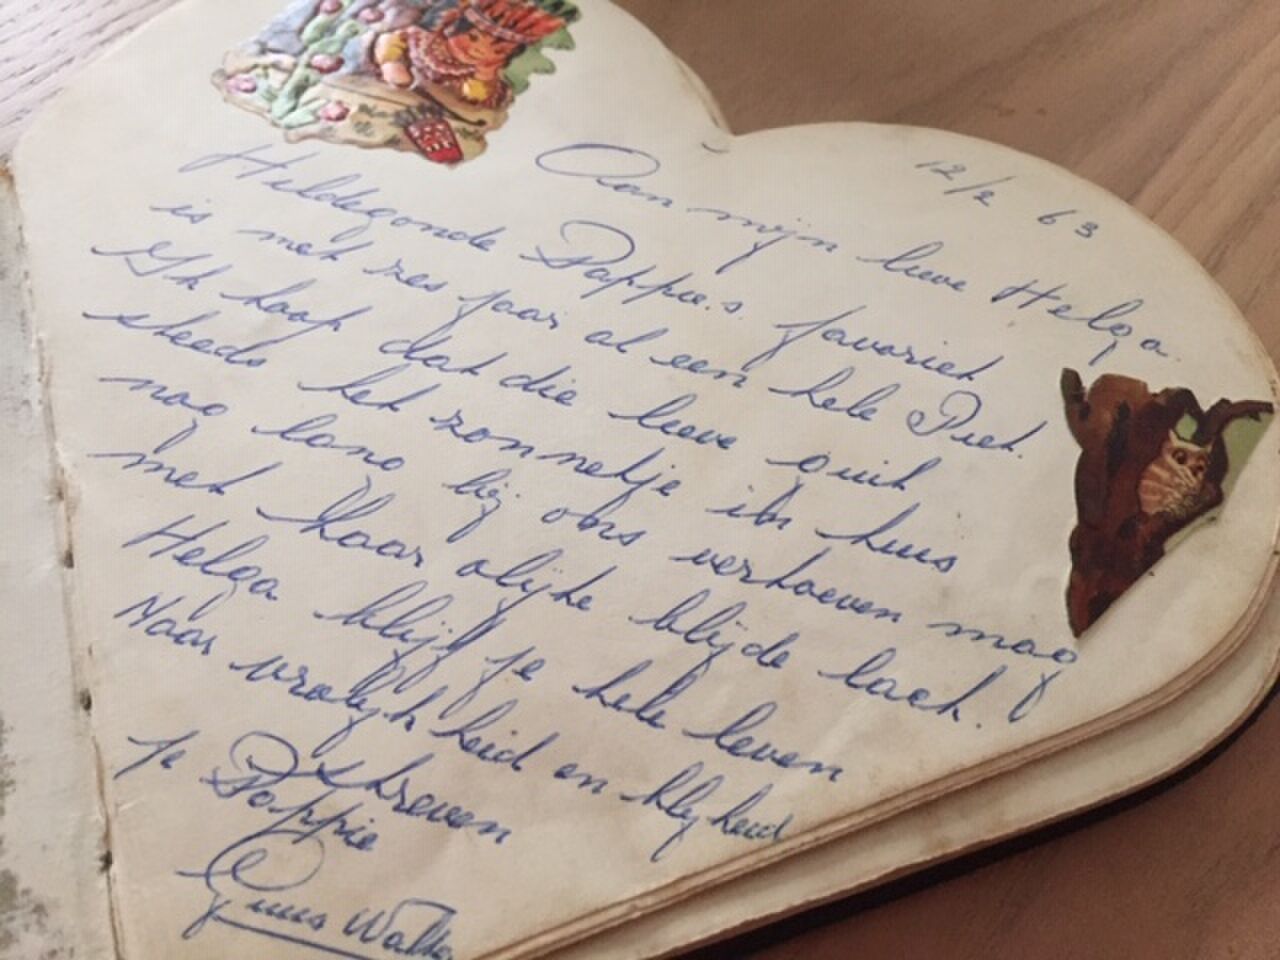 12/2 63
Aan mijn lieve Helga.
Hildegonde Pappie.s favoriet
is met zes jaar al een hele Piet.
Ik hoop dat die lieve guit
steeds het zonnetje in huis
nog lang bij ons vertoeven mag
met haar olijke blijde lach.
Helga blijf je hele leven
Naar vrolijkheid en blijheid
streven
je Pappie
Guus